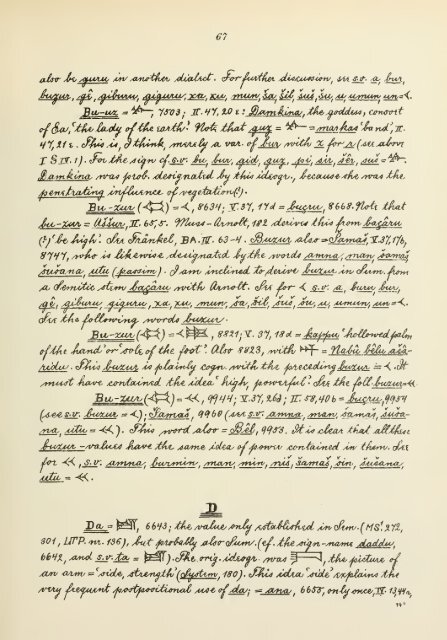 67
also be guru in another dialect. For further discussion, see s.v. a, bur,
buzur, gê, giburu, giguru, xa, xu, mun, ša, šil, šuš, šu, u, umun, un=𒌋.
Bu-uz = , 7503; II. 47, 20 e: Damkina, the goddess, consort
of Ea, 'the lady of the earth'. Note that guz = = markas 'band', II.
47, 21 e. This is, I think, merely a var. of bur with z for r (see above
I S IV. 1). For the sign cf. s.v. bu, bur, gid, guz, pi, sir, šêr, suš =
Damkina was prob. designated by this ideogr., because she was the
penetrating influence of vegetation(?).
Bu-zur ( ) = 𒌋, 8634; V. 37, 17d = buçru, 8668. Note that
bu-zur = Aššur, II. 65, 5. Muss-Arnolt, 182 derives this from baçâru
(?) 'be high'. See Fränkel, BA. III. 63-4. Buzur also = Šamaš, V. 37, 17b,
8747, who is likewise designated by the words amna, man, šamaš
šušana, utu (passim). I am inclined to derive buzur in Sum. from
a Semitic stem baçâru with Arnolt. See for 𒌋 s.v. a, buru, bur,
gê, giburu, giguru, xa, xu, mun, ša, šil, šuš, šu, u, umun, un=𒌋.
See the following words buzur.
Bu-zur ( ) = , 8821; V. 37, 18d = kappu 'hollowed palm
of the hand' or 'sole of the foot'. Also 8823, with = Nabû bêlu aša-
ridu. This buzur is plainly cogn. with the preceding buzur = 𒌋. It
must have contained the idea 'high, powerful'. See the foll. buzur=
Bu-zur ( ) = , 9944; V. 37, 26d; II. 58, 40b = buçru, 9954
(see s.v. buzur = 𒌋); Šamaš, 9960 (see s.v. amna, man, šamaš, šuša-
na, utu = ). This word also = Bêl, 9953. It is clear that all these
buzur-values have the same idea of power contained in them. See
for , s.v. amna, burmin, man, min, niš, šamaš, šin, šušana,
utu = .
D
Da = , 6643; the value only established in Sem. (MS. 272,
301, LITP. nr. 136), but probably also Sum. (cf. the sign-name daddu,
6642, and s.v. ta = ). The orig. ideogr. was , the picture of
an arm = 'side, strength' (System, 180). This idea 'side' explains the
very frequent postpositional use of da; = ana, 6658, only once, IV. 13, 44a,